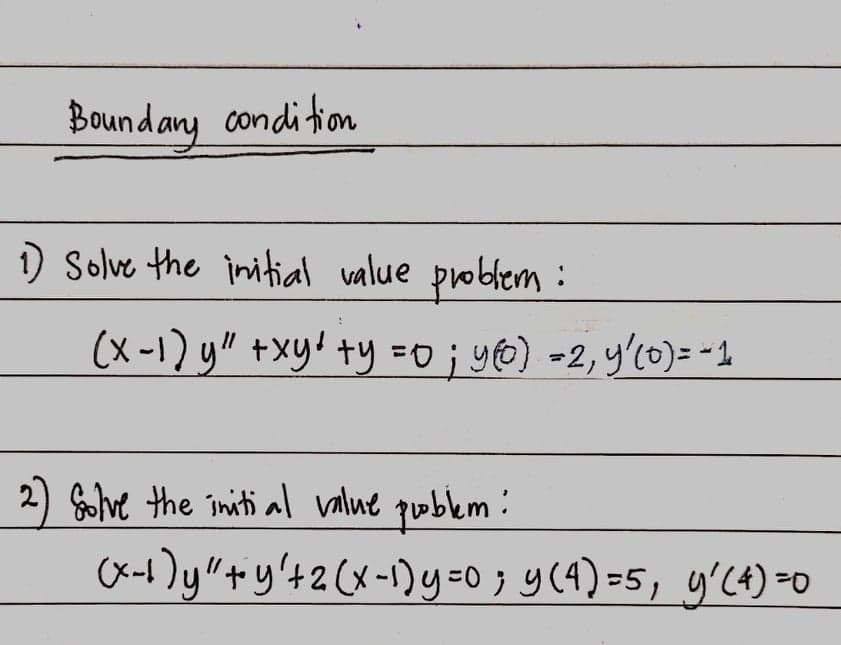 Boundary condition
1) Solve the initial value problem :
(x-1) y" + xy' + y = 0 ; y(0) = 2, y'(0) = -1
2) Solve the initial value problem :
(x-1)y" + y' + 2(x-1)y = 0 ; y(4) = 5, y'(4) = 0